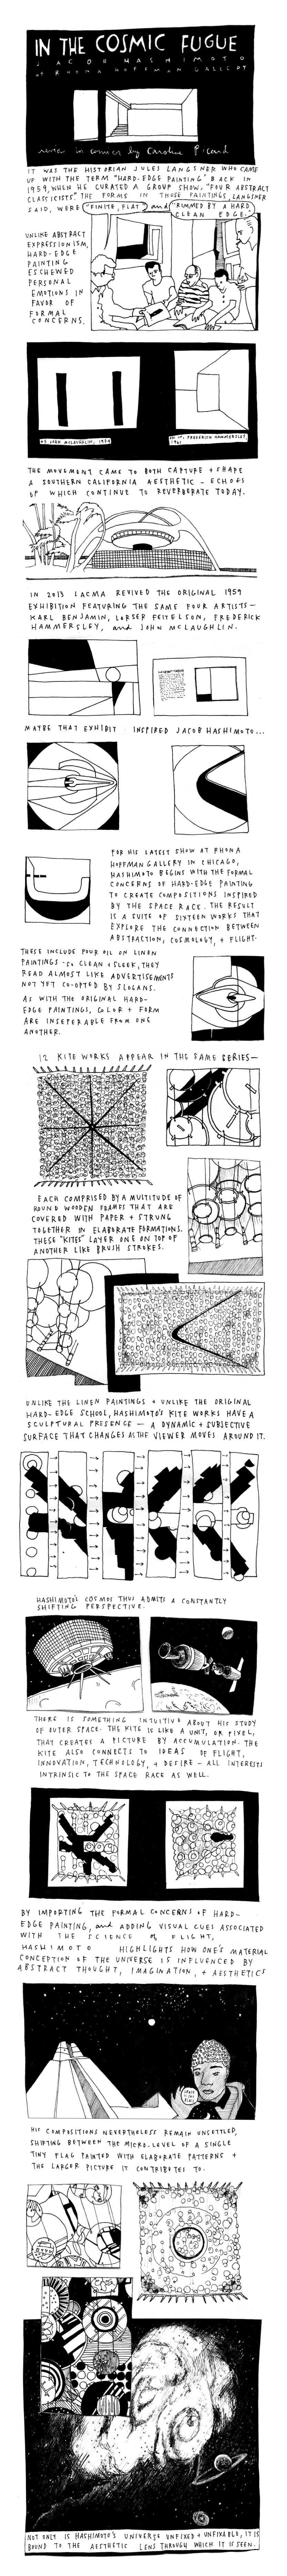 IN THE COSMIC FUGUE
JACOB HASHIMOTO
at RHONA HOFFMAN GALLERY
review in comics by Caroline Picard
IT WAS THE HISTORIAN JULES LANGSNER WHO CAME
UP WITH THE TERM "HARD-EDGE PAINTING" BACK IN
1959, WHEN HE CURATED A GROUP SHOW, "FOUR ABSTRACT
CLASSICISTS." THE FORMS IN THOSE PAINTINGS, LANGSNER
SAID, WERE "FINITE, FLAT" and "RIMMED BY A HARD
CLEAN EDGE."
UNLIKE ABSTRACT
EXPRESSIONISM,
HARD-EDGE
PAINTING
ESCHEWED
PERSONAL
EMOTIONS IN
FAVOR OF
FORMAL
CONCERNS.
JOHN MCLAUGHLIN,
FREDERICK HAMMERSLEY,
THE MOVEMENT CAME TO BOTH CAPTURE + SHAPE
A SOUTHERN CALIFORNIA AESTHETIC - ECHOES
OF WHICH CONTINUE TO REVERBERATE TODAY.
IN 2013 LACMA REVIVED THE ORIGINAL 1959
EXHIBITION FEATURING THE SAME FOUR ARTISTS—
KARL BENJAMIN, LORSER FEITELSON, FREDERICK
HAMMERSLEY, and JOHN MCLAUGHLIN.
MAYBE THAT EXHIBIT INSPIRED JACOB HASHIMOTO...
FOR HIS LATEST SHOW AT RHONA
HOFFMAN GALLERY IN CHICAGO,
HASHIMOTO BEGINS WITH THE FORMAL
CONCERNS OF HARD-EDGE PAINTING
TO CREATE COMPOSITIONS INSPIRED
BY THE SPACE RACE. THE RESULT
IS A SUITE OF SIXTEEN WORKS THAT
EXPLORE THE CONNECTION BETWEEN
ABSTRACTION, COSMOLOGY, + FLIGHT.
THESE INCLUDE FOUR OIL ON LINEN
PAINTINGS - SO CLEAN + SLEEK, THEY
READ ALMOST LIKE ADVERTISEMENTS
NOT YET CO-OPTED BY SLOGANS.
AS WITH THE ORIGINAL HARD-
EDGE PAINTINGS, COLOR + FORM
ARE INSEPERABLE FROM ONE
ANOTHER.
12 KITE WORKS APPEAR IN THE SAME SERIES—
EACH COMPRISED BY A MULTITUDE OF
ROUND WOODEN FRAMES THAT ARE
COVERED WITH PAPER + STRUNG
TOGETHER IN ELABORATE FORMATIONS.
THESE "KITES" LAYER ONE ON TOP OF
ANOTHER LIKE BRUSH STROKES.
UNLIKE THE LINEN PAINTINGS + UNLIKE THE ORIGINAL
HARD-EDGE SCHOOL, HASHIMOTO'S KITE WORKS HAVE A
SCULPTURAL PRESENCE — A DYNAMIC + SUBJECTIVE
SURFACE THAT CHANGES AS THE VIEWER MOVES AROUND IT.
HASHIMOTO'S COSMOS THUS ADMITS A CONSTANTLY
SHIFTING PERSPECTIVE.
THERE IS SOMETHING INTUITIVE ABOUT HIS STUDY
OF OUTER SPACE. THE KITE IS LIKE A UNIT, OR PIXEL,
THAT CREATES A PICTURE BY ACCUMULATION. THE
KITE ALSO CONNECTS TO IDEAS OF FLIGHT,
INNOVATION, TECHNOLOGY, + DESIRE - ALL INTERESTS
INTRINSIC TO THE SPACE RACE AS WELL.
BY IMPORTING THE FORMAL CONCERNS OF HARD-
EDGE PAINTING, and ADDING VISUAL CUES ASSOCIATED
WITH THE SCIENCE of FLIGHT,
HASHIMOTO HIGHLIGHTS HOW ONE'S MATERIAL
CONCEPTION OF THE UNIVERSE IS INFLUENCED BY
ABSTRACT THOUGHT, IMAGINATION, + AESTHETICS
SPACE IS THE PLACE
HIS COMPOSITIONS NEVERTHELESS REMAIN UNSETTLED,
SHIFTING BETWEEN THE MICRO-LEVEL OF A SINGLE
TINY FLAG PAINTED WITH ELABORATE PATTERNS +
THE LARGER PICTURE IT CONTRIBUTES TO.
NOT ONLY IS HASHIMOTO'S UNIVERSE UNFIXED + UNFIXABLE, IT IS
BOUND TO THE AESTHETIC LENS THROUGH WHICH IT IS SEEN.